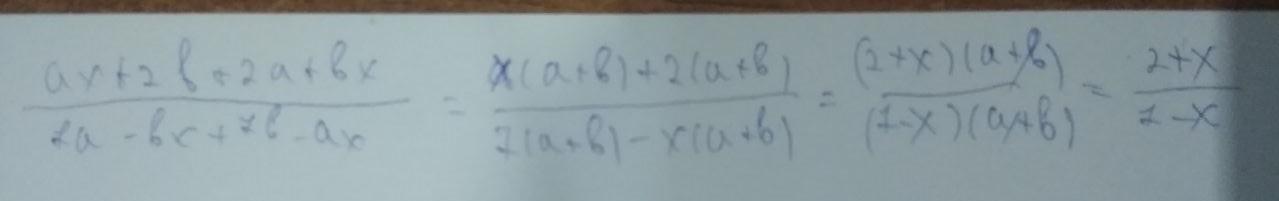 (ax+2b+2a+bx)/(7a-bx+7b-ax) = (x(a+b)+2(a+b))/(7(a+b)-x(a+b)) = ((2+x)(a+b))/((7-x)(a+b)) = (2+x)/(7-x)